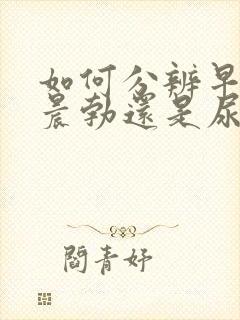 如何分辨早
晨勃還是尿
閻青妤